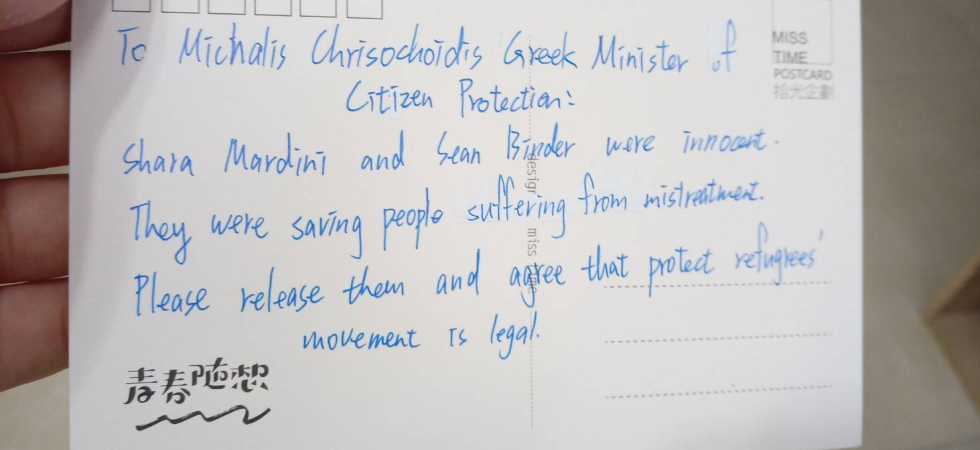 To Michalis Chrisochoidis Greek Minister of
Citizen Protection:
Shara Mardini and Sean Binder were innocent.
They were saving people suffering from mistreatment.
Please release them and agree that protect refugrees'
movement is legal.
MISS
TIME
POSTCARD
拾光企劃
design miss time
青春随想